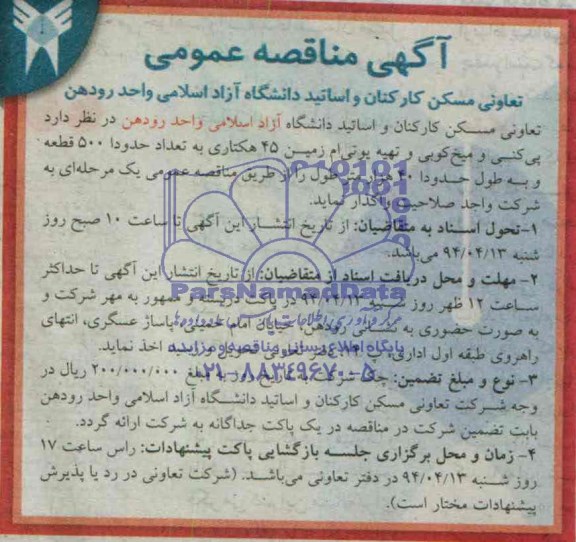 آگهی مناقصه عمومی
تعاونی مسکن کارکنان و اساتید دانشگاه آزاد اسلامی واحد رودهن
تعاونی مسکن کارکنان و اساتید دانشگاه آزاد اسلامی واحد رودهن در نظر دارد
پی‌کنی و میخ‌کوبی و تهیه یو‌تی‌ام زمین ۴۵ هکتاری به تعداد حدودا ۵۰۰ قطعه
و به طول حدودا ۴۰ هزار متر طول را از طریق مناقصه عمومی یک مرحله‌ای به
شرکت واجد صلاحیت واگذار نماید.
۱-تحول اسناد به متقاضیان: از تاریخ انتشار این آگهی تا ساعت ۱۰ صبح روز
شنبه ۹۴/۰۴/۱۳ می‌باشد.
۲- مهلت و محل دریافت اسناد از متقاضیان: از تاریخ انتشار این آگهی تا حداکثر
ساعت ۱۲ ظهر روز شنبه ۹۴/۰۴/۱۳ در پاکت دربسته و ممهور به مهر شرکت و
به صورت حضوری به نشانی رودهن، خیابان امام خمینی، پاساژ عسگری، انتهای
راهروی طبقه اول اداری، دفتر تعاونی اخذ نماید.
۳- نوع و مبلغ تضمین: به مبلغ ۲۰۰/۰۰۰/۰۰۰ ریال در
وجه شرکت تعاونی مسکن کارکنان و اساتید دانشگاه آزاد اسلامی واحد رودهن
بابت تضمین شرکت در مناقصه در یک پاکت جداگانه به شرکت ارائه گردد.
۴- زمان و محل برگزاری جلسه بازگشایی پاکت پیشنهادات: راس ساعت ۱۷
روز شنبه ۹۴/۰۴/۱۳ در دفتر تعاونی می‌باشد. (شرکت تعاونی در رد یا پذیرش
پیشنهادات مختار است).
ParsNamadData
پایگاه اطلاع رسانی مناقصه و مزایده
۰۲۱-۸۸۳۴۹۶۷۰-۵